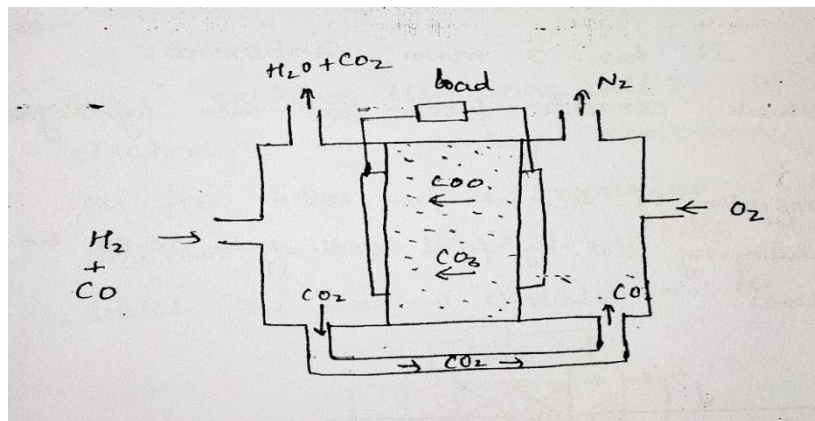 H₂O + CO₂
load
N₂
COO
O₂
H₂
+
CO
CO₃
CO₂
CO
CO₂